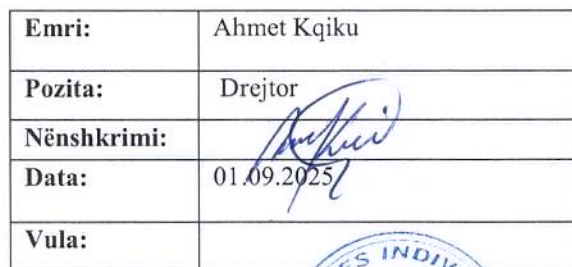 Emri: Ahmet Kqiku
Pozita: Drejtor
Nënshkrimi:
Data: 01.09.2025
Vula: